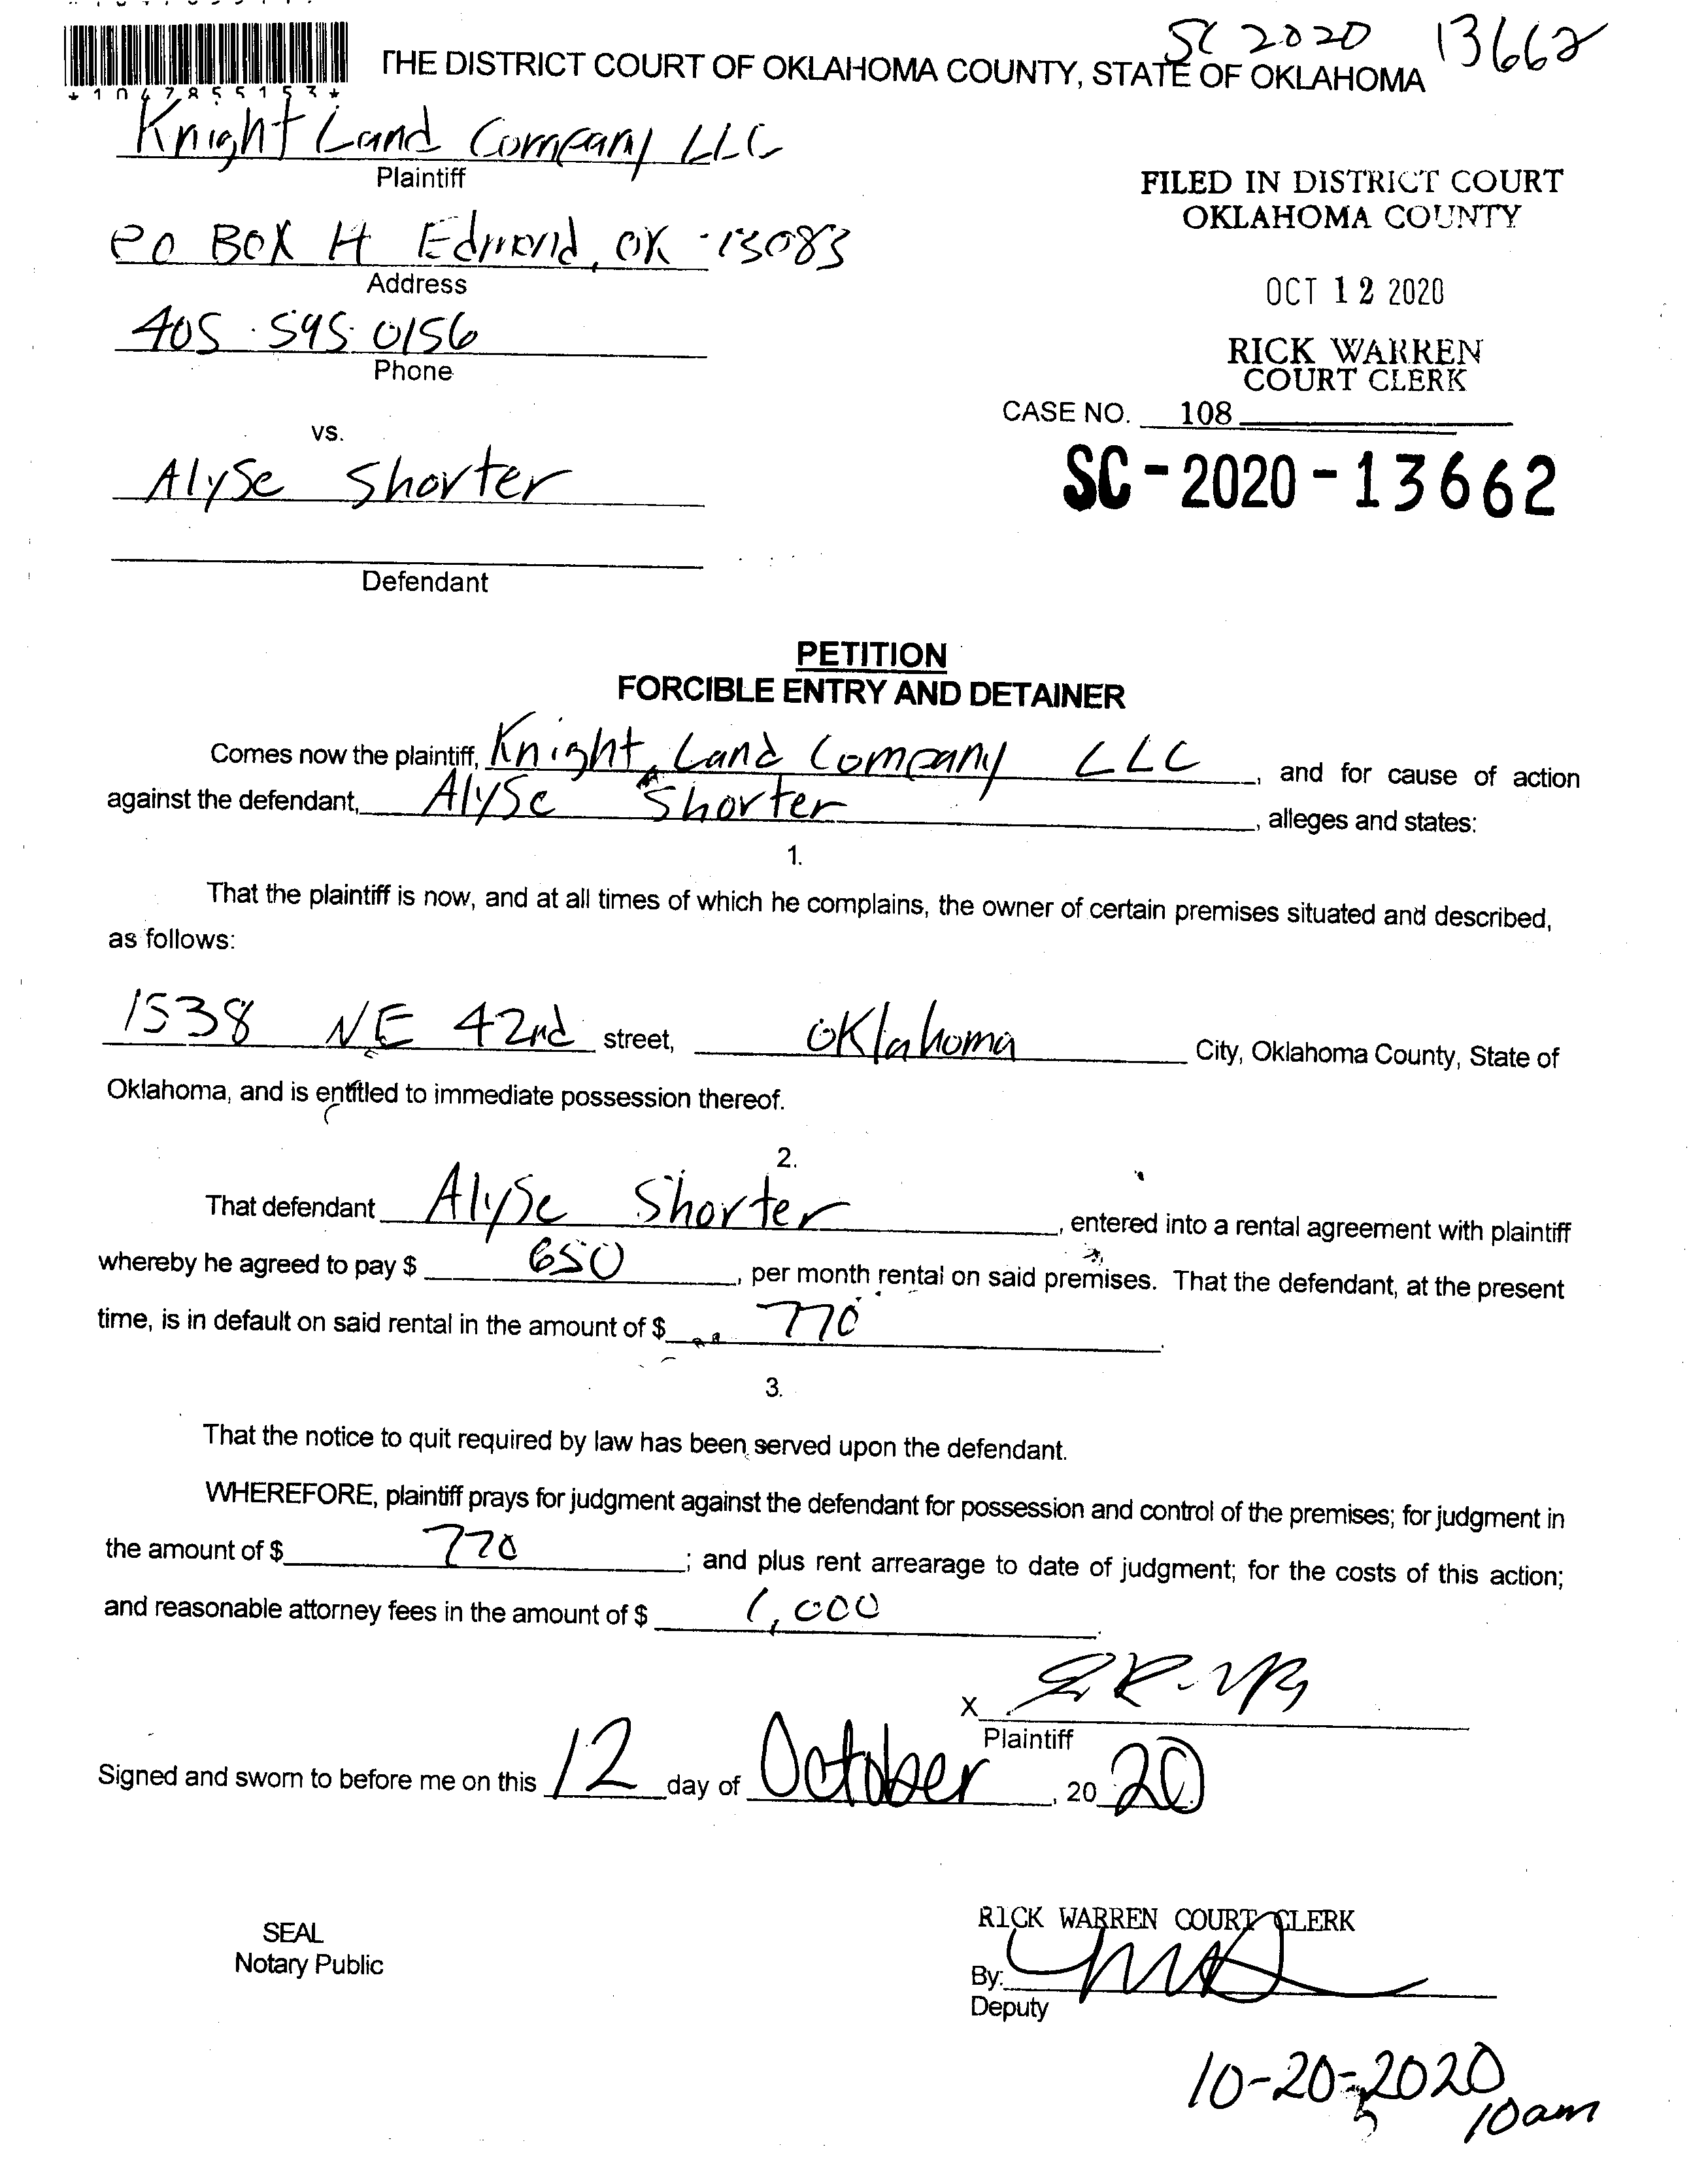 SC 2020 13662
*1047855153*
THE DISTRICT COURT OF OKLAHOMA COUNTY, STATE OF OKLAHOMA
Knight Land Company LLC
Plaintiff
FILED IN DISTRICT COURT
OKLAHOMA COUNTY
PO BOX H Edmond, OK 73083
Address
OCT 12 2020
405 595 0156
Phone
RICK WARREN
COURT CLERK
CASE NO. 108
vs.
SC-2020-13662
Alyse Shorter
Defendant
PETITION
FORCIBLE ENTRY AND DETAINER
Comes now the plaintiff, Knight Land Company LLC, and for cause of action
against the defendant, Alyse Shorter, alleges and states:
1.
That the plaintiff is now, and at all times of which he complains, the owner of certain premises situated and described,
as follows:
1538 NE 42nd street, Oklahoma City, Oklahoma County, State of
Oklahoma, and is entitled to immediate possession thereof.
2.
That defendant Alyse Shorter, entered into a rental agreement with plaintiff
whereby he agreed to pay $ 650, per month rental on said premises. That the defendant, at the present
time, is in default on said rental in the amount of $ 770.
3.
That the notice to quit required by law has been served upon the defendant.
WHEREFORE, plaintiff prays for judgment against the defendant for possession and control of the premises; for judgment in
the amount of $ 770; and plus rent arrearage to date of judgment; for the costs of this action;
and reasonable attorney fees in the amount of $ 1,000.
X
Plaintiff
Signed and sworn to before me on this 12 day of October, 2020
RICK WARREN COURT CLERK
SEAL
Notary Public
By:
Deputy
10-20-2020
10am